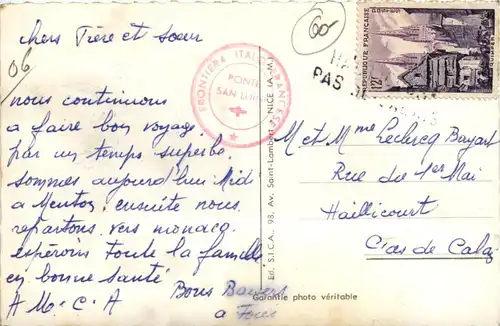 chers Frere et sœur
06
60
nous continuons
a faire bon voyage
par un temps superbe.
sommes aujourd'hui Midi
a Menton, ensuite nous
repartons vers monaco
espérons toute la famille
en bonne santé
A M. C. A Bons Baisers
a Tous
FRONTIERA ITALO FRANCESE
PONTE
SAN LUIGI
Ed. S.I.C.A., 98, Av. Saint-Lambert - NICE (A.-M.)
Garantie photo véritable
REPUBLIQUE FRANÇAISE
12F
QUIMPER
PAS DE
M et Mme Leclercq Bayart
Rue du 1er Mai
Haillicourt
Pas de Calais